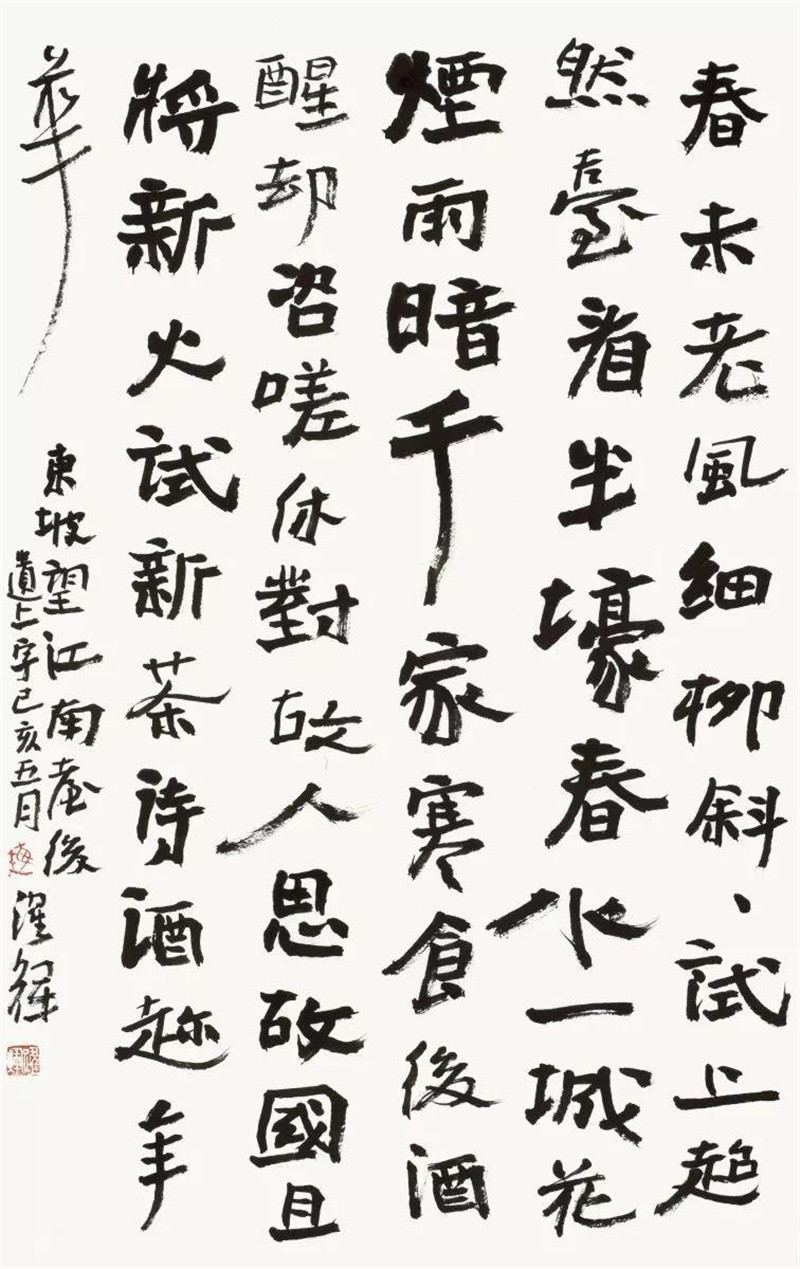 春未老風細柳斜、試上超
然臺看半壕春水一城花
煙雨暗千家寒食後酒
醒却咨嗟休對故人思故國且
將新火試新茶詩酒趁年
華
東坡望江南臺後
遺上字己亥五月